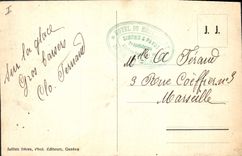 I
J. J.
Sur la glace
Gros baisers
Clo. Fernand
HOTEL DU
Mlle A Féraud
9 Rue Coëffier
Marseille
Jullien frères, Phot. Editeurs, Genève